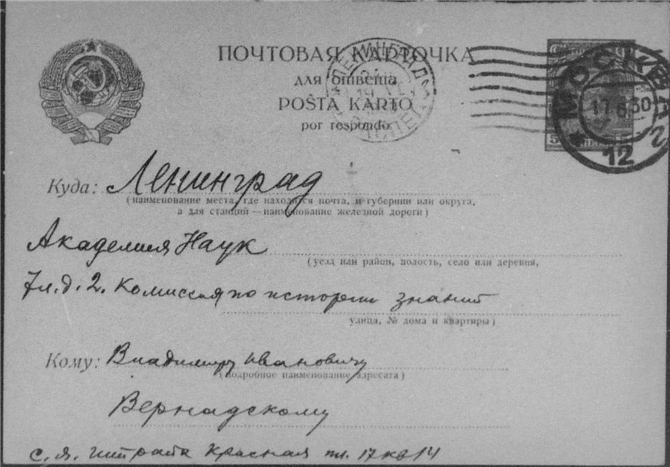 ПОЧТОВАЯ КАРТОЧКА
для ответа
POSTA KARTO
por respondo
МОСКВА
17.6.30
12
Куда: Ленинград
(наименование места, где находится почта, и губернии или округа,
а для станций—наименование железной дороги)
Академия Наук
(уезд или район, волость, село или деревня,
7л.д.2. Комиссия по истории знаний
улица, № дома и квартиры)
Кому: Владимиру Ивановичу
(подробное наименование адресата)
Вернадскому
С.Я. Штрайх Красная пл. 17 кв 14